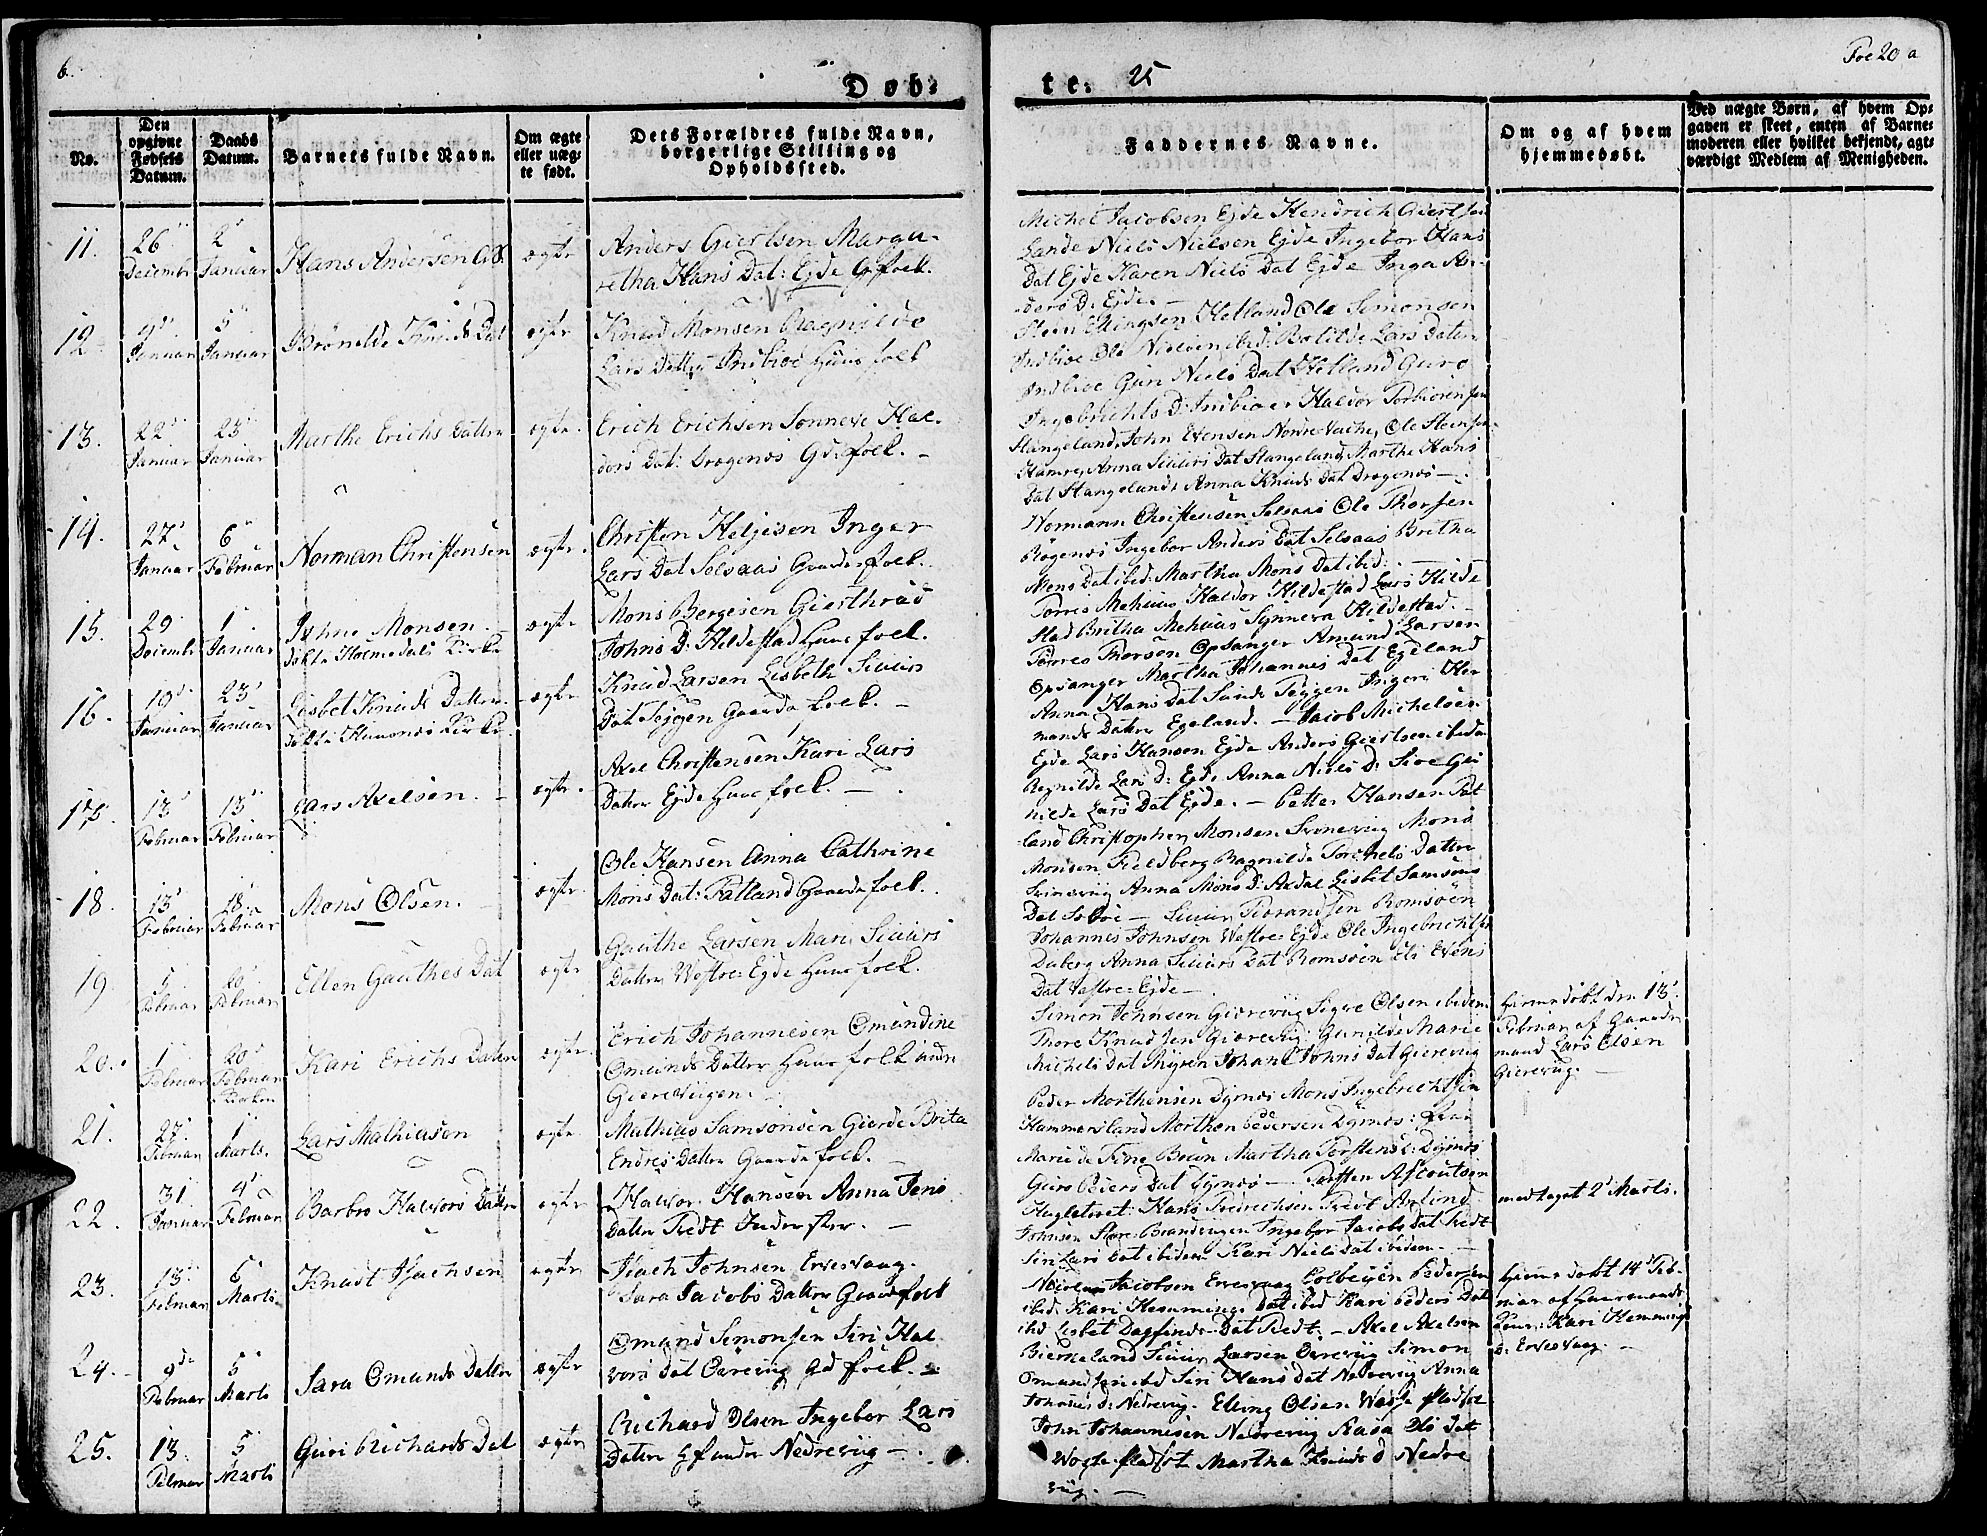 6.
Døb-
te.
25
Foe 20 a
No.
Den
opgivne
Fødsels
Datum.
Daabs
Datum.
Barnets fulde Navn.
Om ægte
eller uæg-
te født.
Dets Forældres fulde Navn,
borgerlige Stilling og
Opholdssted.
Faddernes Navne.
Om og af hvem
hjemmedøbt.
Ved uægte Børn, af hvem Op-
gaven er skeet, enten af Barne-
moderen eller hvilket bekjendt, agt-
værdigt Medlem af Menigheden.
11.
26
Decembr
2
Januar
Hans Andersen
ægte
Anders Giertsen Marga-
retha Hans Dat: Ejde Gfolk.
Michel Jacobsen Ejde Hendrich Giertsen
Lande Niels Nielsen Ejde Ingebor Hans
Dat Ejde Karen Niels Dat Ejde Inga An-
ders D: Ejde.
12
9
Januar
5
Januar
Brönilde Knuds Dat
ægte
Knud Monsen Ragnilde
Lars Datter Indbioe Huusfolk
Steen Ellingsen Helland Ole Simonsen
Indbioe Ole Nielsen ibid: Botilde Lars Datter
Indbioe Guri Niels Dat Helland Guro
Ingebrichts D: Indbioe
13.
22
Januar
23
Januar
Marthe Erichs Datter
ægte
Erich Erichsen Sönneve Hal-
dors Dat: Drogenes Gdfolk.
Haldor Torbiörensen
Stangeland John Evensen Nordre Vache, Ole Steensen
Hamre, Anna Siuurs Dat Stangeland Marthe Hans
Dat Stangeland Anna Knuds Dat Drogenes
14.
27
Januar
6
Februar
Norman Christensen
ægte.
Christen Heljesen Inger
Lars Dat Selsaas Gaardsfolk.
Normann Christensen Selsaas Ole Thorsen
Røgenes Ingebor Anders Dat Selsaas Bretha
Mons Dat ibid: Martha Mons Dat ibid:
15.
29
Decembr
1
Januar
Johne Monsen
döbt i Holmedals Kirke
ægte
Mons Bergesen Gierthrud
Johns D: Hildestad Huusfolk.
Torres Mehuus Haldor Hildestad Lars Hilde
stad Britha Mehuus Synneva Hildestad.
16.
19
Januar
23
Januar
Lisbet Knuds Datter
döbt i Huusnæs Kirke
ægte
Knud Larsen Lisbeth Siuurs
Dat Teigen Gaardsfolk.
Torres Thorsen Opsanger Amund Larsen
Opsanger Martha Johannes Dat Egeland
Anna Hans Dat Sunde Teggen Ingeri Her
mands Datter Egeland.
17.
13
Februar
13
Februar
Lars Axelsen.
ægte.
Axel Christensen Kari Lars
Datter Ejde Huusfolk.
Jacob Michelsen
Ejde Lars Hansen Ejde Anders Giertsen ibidm
Regnilde Lars D: Ejde Anna Niels D:
nilde Lars Dat Ejde.
18.
15
Februar
18
Februar
Mons Olsen.
ægte.
Ole Hansen Anna Cathrine
Mons Dat: Fatland Gaardsfolk.
Petter Hansen Fat
land Christopher Monsen Svinevig Mons
Monsen Fieldberg Ragnilde Torchels Datter
Svinevig Anna Mons D: Axdal Lisbet Samsons
Dat
19.
5
Februar
20
Februar
Ellen Gauthes Dat
ægte
Gauthe Larsen Mari Siuurs
Datter Westre Ejde Huusfolk.
Romsöen
Johannes Johnsen Westre Ejde Ole Ingebrichtsen
Daberg Anna Siuurs Dat Romsöen Els Evens
Dat Vestre Ejde
20.
1
Februar
20
Februar
Kari Erichs Datter
ægte.
Erich Johannesen Omundine
Omunds Datter Huusfolk
Gierevigen.
Simon Johnsen Gierevig Sigve Olsen ibidem
Thore Knudsen Gierevig: Gunilde Marie
Michels Dat Myren Johane Johns Dat Gierevig
Hiemedöbt den 13
Februar af Gaard-
mand Lars Olsen
Gierevig.
21.
27
Februar
1
Marts.
Lars Mathiasen
ægte
Mathias Samsonsen Gierde Brita
Endres Datter Gaardsfolk.
Peder Morthensen Dyrnes Mons Ingebrechtsen
Hammersland Morthen Pedersen Dyrnes:
Marie de Fine Bruun Martha Torstens D: Dyrnes
Guro Peders Dat Dyrnes
22.
31
Januar
4
Februar
Barbro Halvors Datter
ægte
Halvor Hansen Anna Jens
Datter Tredt Inderster.
Torsten Asloutsen
Hugletvet: Hans Fredrichsen Tredt Arlind
Johnsen Store Brandvigen Ingebor Jacobs Dat Tredt
Siri Lars Dat ibidem Kari Niels Dat ibidem
modtaget 2 Marts.
23.
13
Februar
6
Marts
Knudt Isachsen
ægte
Isach Johnsen Ervesvaag.
Sara Jacobs Datter Gaardfolk
Nicolay Jacobsen Ervesvaag Colbeyen Pedersen
ibid: Kari Hemmings Dat ibid Kari Peders Dat
ibid Lisbet Dagfinds Dat Tredt.
hieme döbt 14 Feb-
ruar af Gaarmands
Kone Kari Hemmings
D: Ervesvaag.
24.
9de
Februar
5
Marts
Sara Omunds Datter
ægte
Omund Simonsen Siri Hal
vors Dat Overvig Gdfolk.
Axel Axelsen
Bierkeland Siuur Larsen Overvig Simon
Omundsen ibd Siri Hans Dat Nedrevig Anna
Johnnes D: Nedrevig.
25.
13
Februar
5
Marts
Guri Richards Dat
ægte
Richard Olsen Ingebor Lars
Datter Hfunder Nedrevig
Elling Olsen
John Johannesen Nedrevig Rasa Els Dat
Martha Knuds D Nedre
vig.